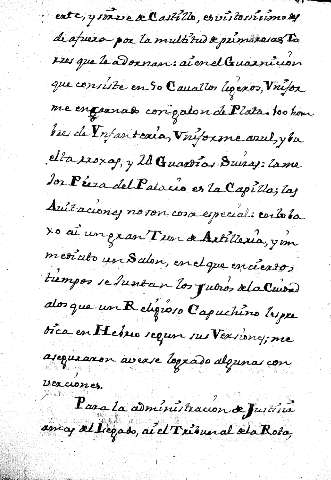 este, y sirve de Castillo, es vistosissimo
de afuera por la multitud de primorosas To
rres que le adornan: ai en el Guarnicion
que consiste en 50 Cavallos ligeros, Unifor
me engranado con galon de Plata. 400 hom
bres de Ynfanteria, Uniforme azul, y bu
elta roxas, y 20 Guardias Suizos: la me
jor Pieza del Palacio es la Capilla; las
Avitaciones no son cosa especial: en lo ba
xo ai un gran Tren de Artilleria, y in
mediato un Salon, en el que en ciertos
tiempos se Juntan los Judios de la Ciudad
a los que un Religioso Capuchino les pre
dica en Hebreo segun sus Versiones; me
aseguraron averse logrado algunas con
verciones.
Para la administracion de Justicia
amas del Legado, ai el Tribunal de la Rota,